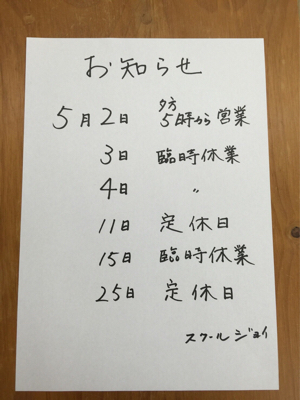 お知らせ
5月2日 夕方5時から営業
3日 臨時休業
4日 〃
11日 定休日
15日 臨時休業
25日 定休日
スクールジョイ